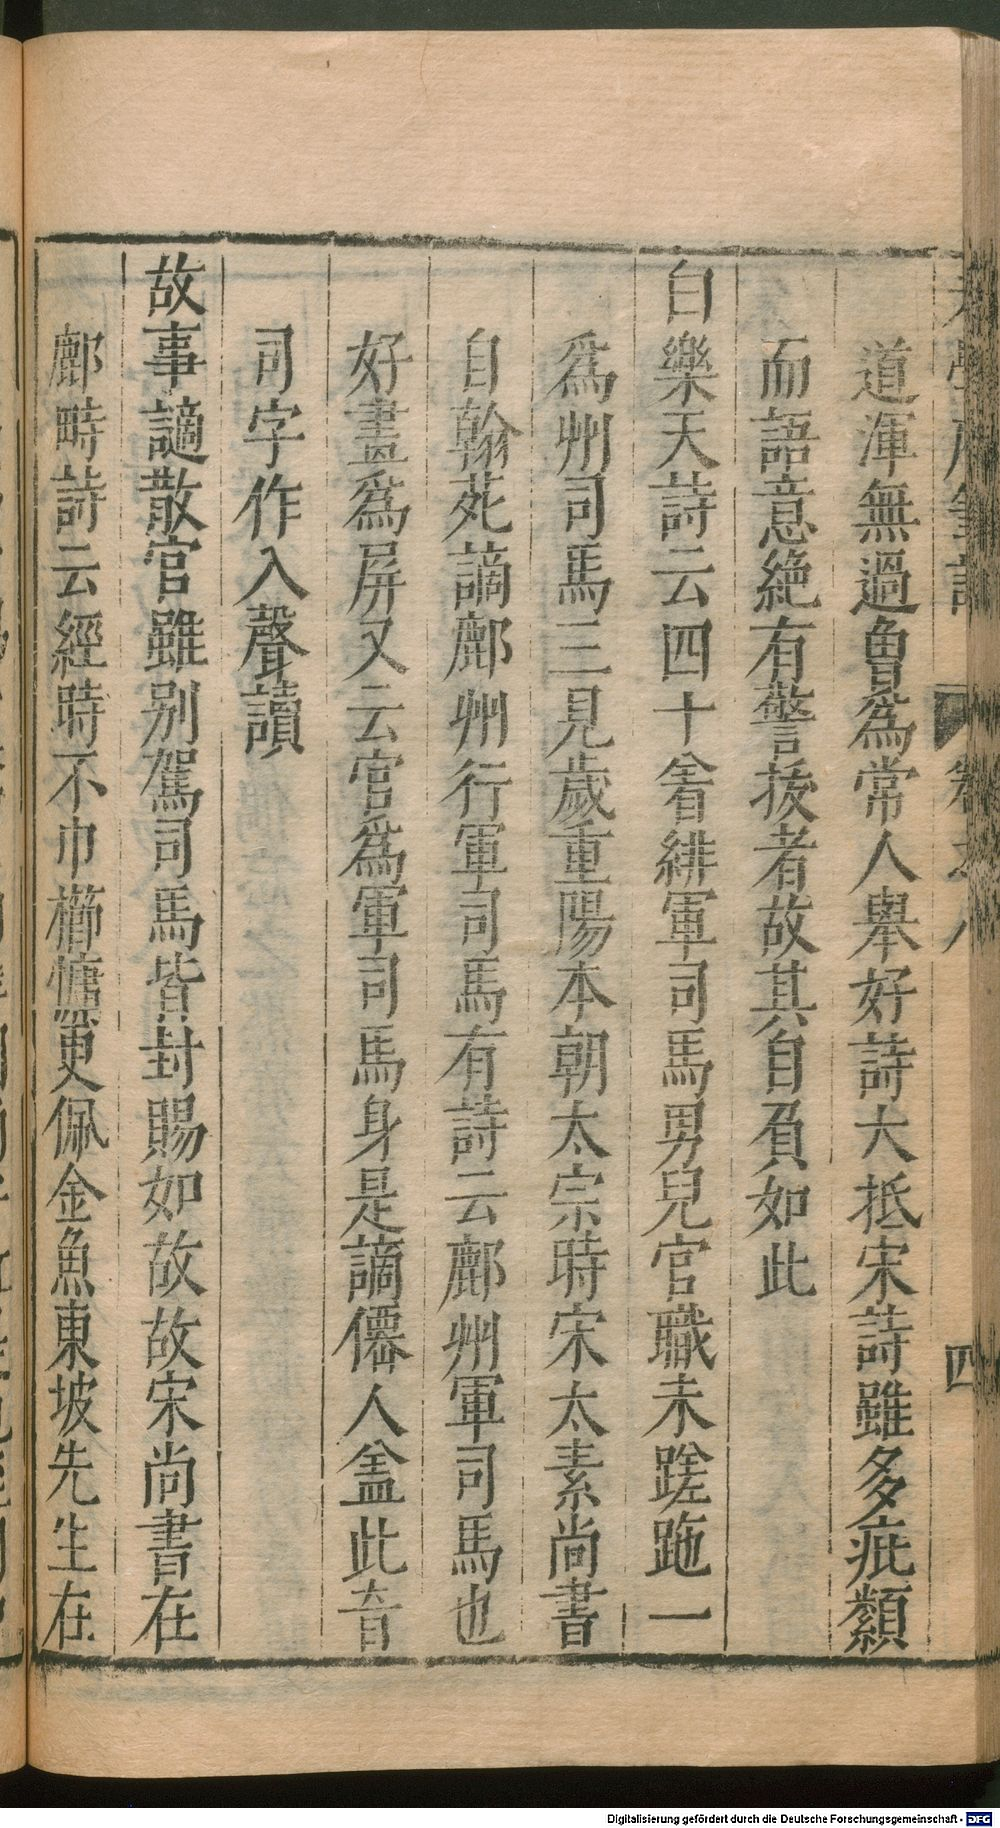 老學庵筆記 卷之八 四
道渾無過魯爲常人舉好詩大抵宋詩雖多疵纇
而語意絶有警拔者故其自負如此
白樂天詩云四十着緋軍司馬男兒官職未蹉跎一
爲州司馬三見歲重陽本朝太宗時宋太素尚書
自翰苑謫鄜州行軍司馬有詩云鄜州軍司馬也
好畫爲屏又云官爲軍司馬身是謫僊人盖此音
司字作入聲讀
故事謫散官雖别駕司馬皆封賜如故故宋尚書在
鄜畤詩云經時不巾櫛慵更佩金魚東坡先生在
Digitalisierung gefördert durch die Deutsche Forschungsgemeinschaft - DFG